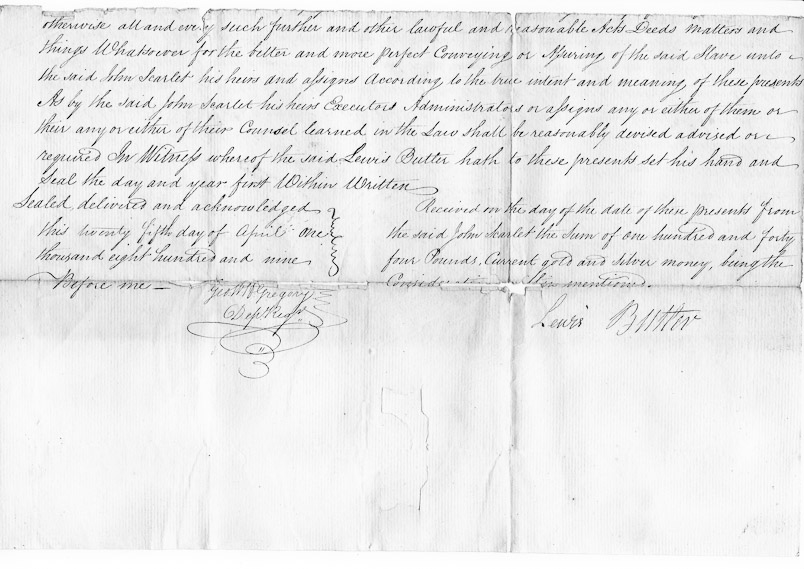 otherwise all and every such further and other lawful and reasonable Acts Deeds matters and
things Whatsoever for the better and more perfect Conveying or Assuring of the said Slave unto
the said John Scarlet his heirs and assigns According to the true intent and meaning of these presents
As by the said John Scarlet his heirs Executors Administrators or assigns any or either of them or
their any or either of their Counsel learned in the Law shall be reasonably devised advised or
required In Witness whereof the said Lewis Butter hath to these presents set his hand and
Seal the day and year first Within Written
Sealed, delivered and acknowledged
this twenty fifth day of April One
thousand eight hundred and nine
Before me —
Geo
Gregory
Depy Regr
Received on the day of the date of these presents from
the said John Scarlet the Sum of one hundred and forty
four Pounds, Current gold and silver money, being the
mentioned.
Lewis Butter